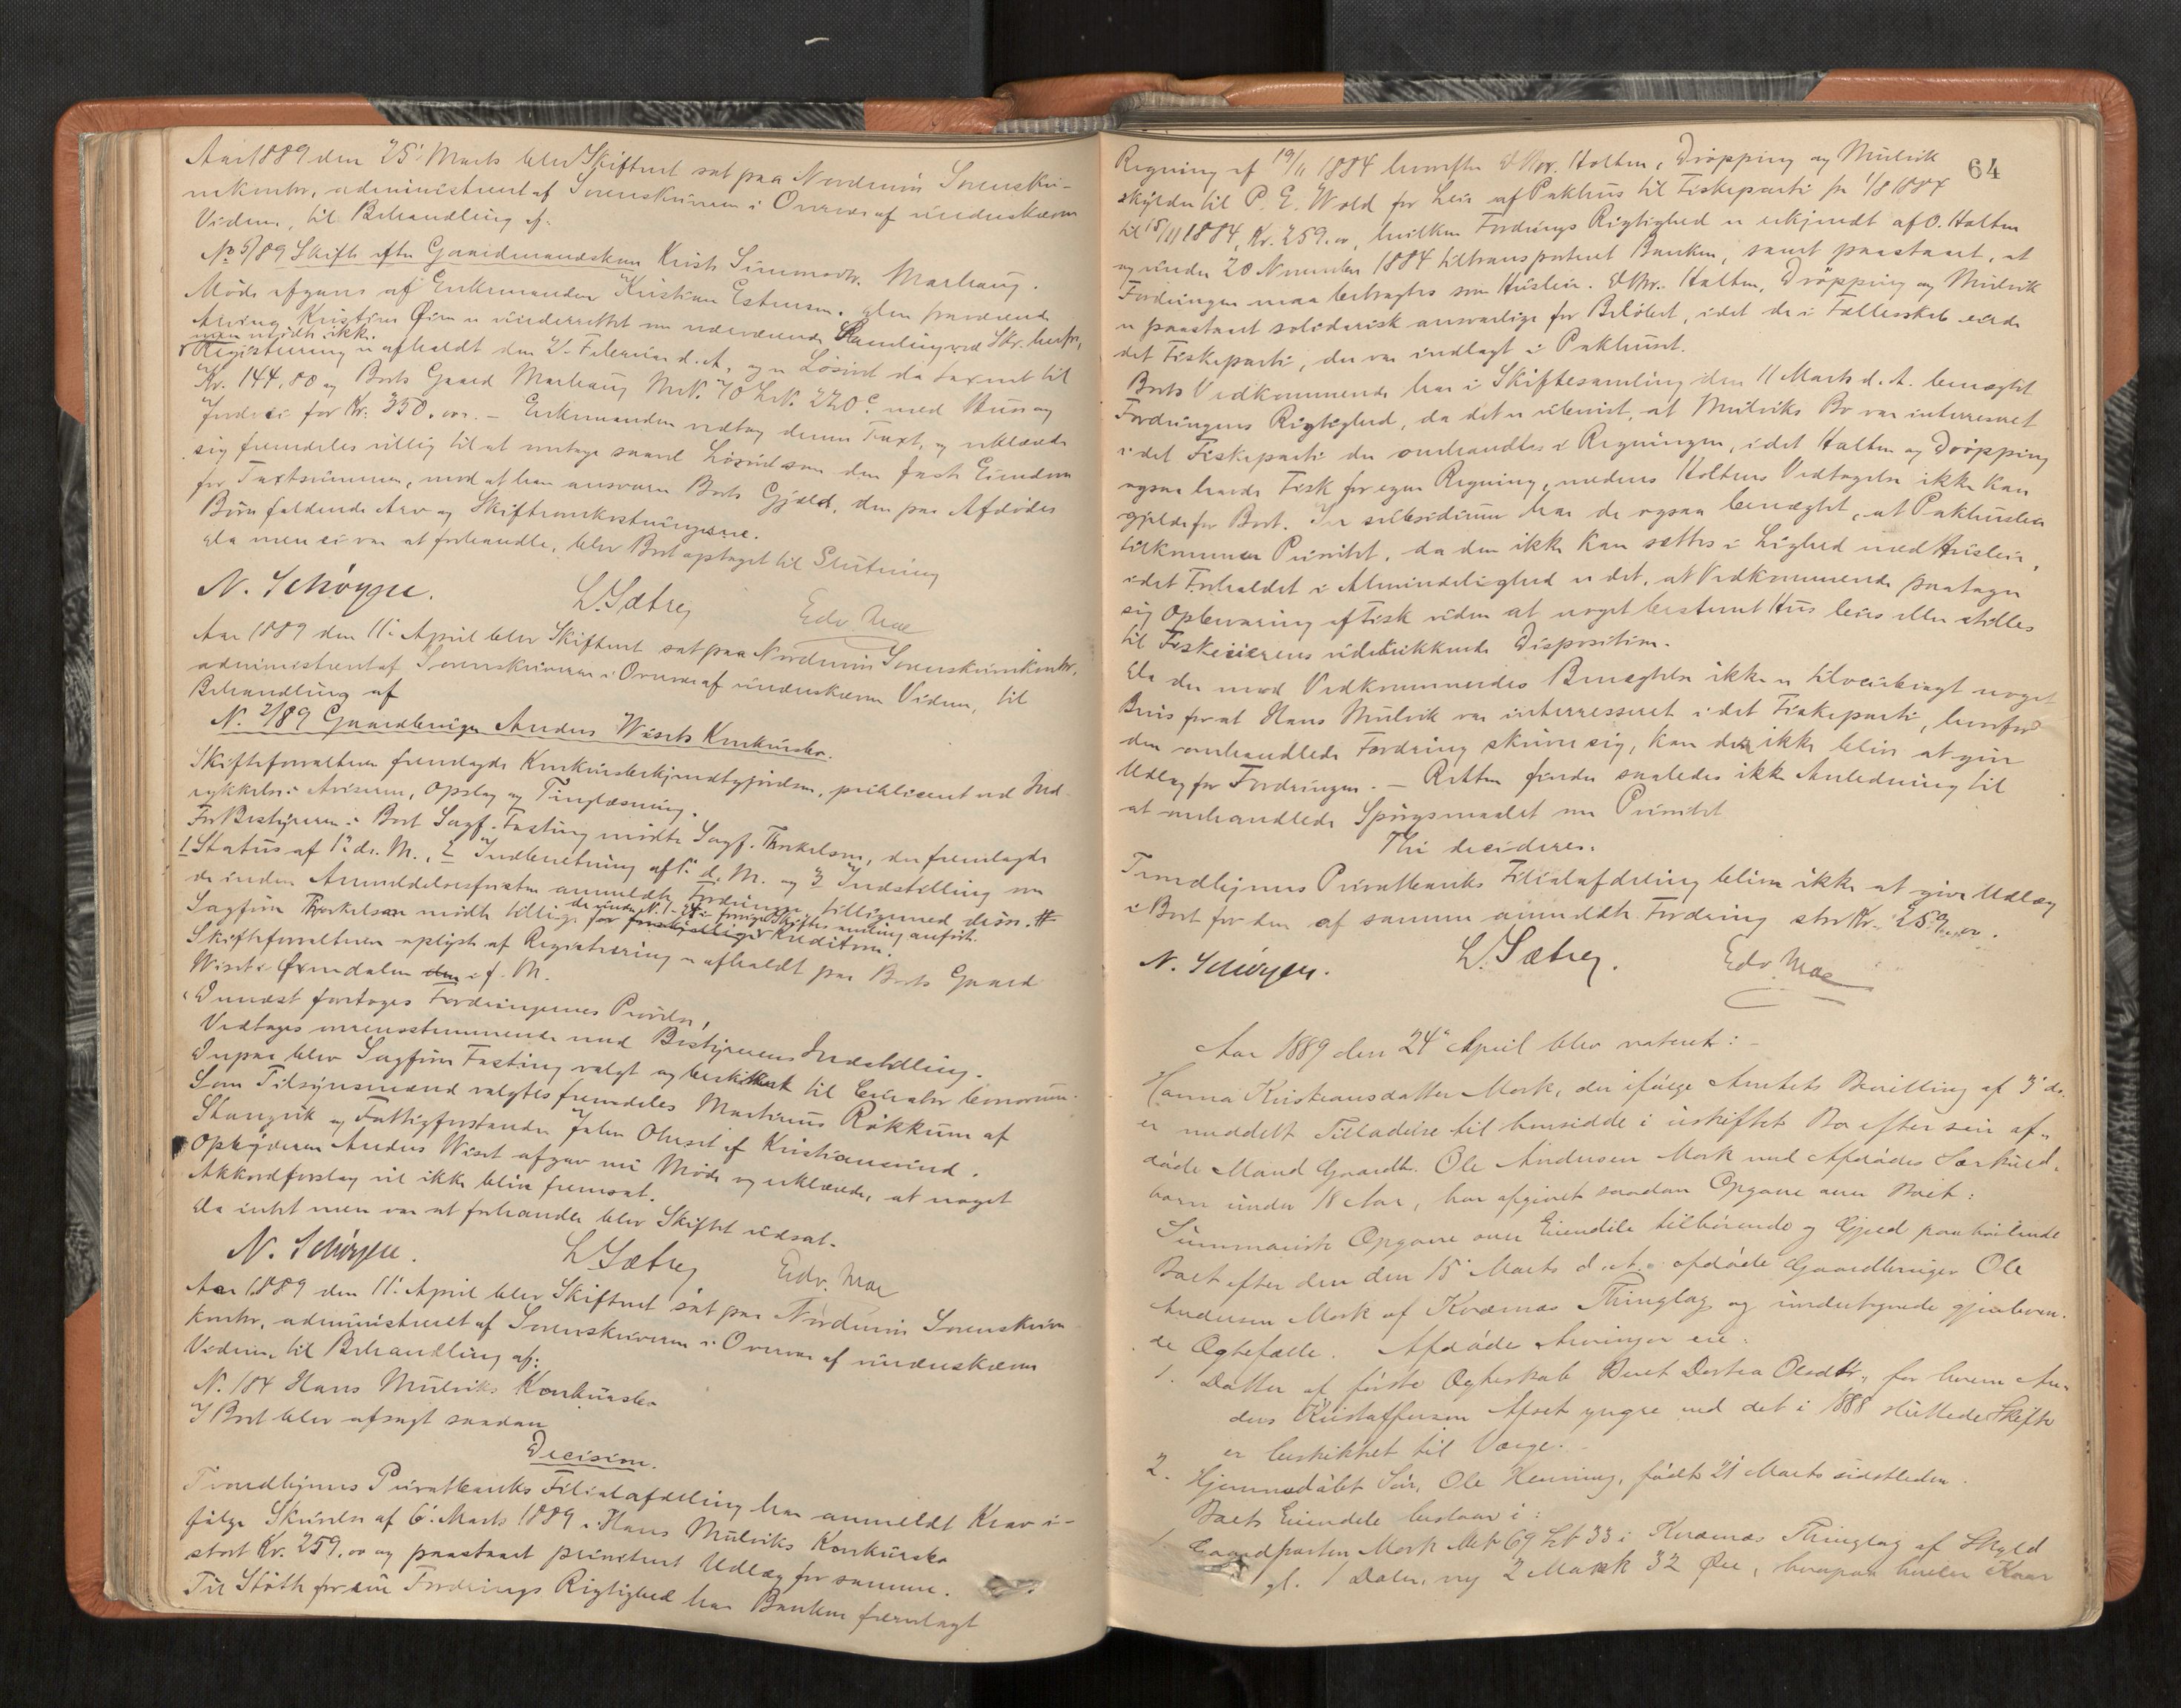 Aar 1889 den 25' Marts blev Skifteret sat paa Nordmørs Sorenskri-
verkontor, administreret af Sorenskriveren i Overvær af underskrevne
Vidner, til Behandling af:
No 5/89 Skifte efter Gaardmandskone Kristi Simonsdtr. Marhaug.
Møde afgaves af Enkemanden Kristian Estensen. Den fraværende
Arving Kristine Øien er underrettet om nærværende Samling ved Skr. herfra,
men mødte ikke.
Registrering er afholdt den 2. Februar d. A., og er Løsøret da taxeret til
Kr. 144,80 og Boets Gaard Marhaug M.N. 70 L.N. 220c med Huse og
Jordvei for Kr. 350.00. – Enkemanden vedtog denne Taxt, og erklærede
sig fremdeles villig til at overtage saavel Løsøret som den faste Eiendom
for Taxtsummen, mod at han ansvarer Boets Gjæld, den paa Afdødes
Børn faldende Arv og Skifteomkostningerne.
Da mere ei var at forhandle, blev Boet optaget til Slutning
N. Schøyen. L. Sætrey Edv. Moe
Aar 1889 den 11' April blev Skifteret sat paa Nordmørs Sorenskriverkontor,
administreret af Sorenskriveren i Overvær af underskrevne Vidner, til
Behandling af
N. 2/89 Gaardbruger Anders Wisets Konkursbo.
Skifteforvalteren fremlagde Konkursbekjendtgjørelsen, publiceret ved Ind-
rykkelse i Aviserne, Opslag og Tinglæsning.
For Bestyreren i Boet Sagf. Fasting mødte Sagf. Thorkelsen, der fremlagde
1 Status af 1' ds. M., 2 Indberetning af s. d. M. og 3 Indstilling om
de inden Anmeldelsesfristen anmeldte Fordringer tilligemed disse. #
de under N. 1-24 i forrige Skiftesamling anførte
Sagfører Thorkelsen mødte tillige for forskjellige Kreditorer.
Skifteforvalteren oplyste at Registrering er afholdt paa Boets Gaard
Wiset i Øxendalen den i f. M.
Dernæst foretoges Fordringernes Prøvelse,
Vedtoges overensstemmende med Bestyrerens Indstilling.
Derpaa blev Sagfører Fasting valgt og beskikket til Curator bonorum.
Som Tilsynsmænd valgtes fremdeles Martinus Røkkum af
Stangvik og Fattigforstander John Olsen af Kristiansund.
Opbyderen Anders Wiset afgav nu Møde og erklærede, at noget
Akkordforslag vil ikke blive fremsat.
Da intet mere var at forhandle blev Skiftet udsat.
N. Schøyen. L. Sætrey Edv. Moe
Aar 1889 den 11' April blev Skifteret sat paa Nordmørs Sorenskriver-
kontor, administreret af Sorenskriveren i Overvær af underskrevne
Vidner til Behandling af:
N. 184 Hans Mulviks Konkursbo
I Boet blev afsagt saadan
Decision.
Trondhjems Privatbanks Filialafdeling har anmeldt Krav i-
følge Skrivelse af 6' Marts 1889 i Hans Mulviks Konkursbo
stort Kr. 259.00 og paastaaet prioriteret Udlæg for samme.
Til Støtte for sin Fordrings Rigtighed har Banken fremlagt
64
Regning af 19/11 1884 hvorefter DHrr. Holten, Drøpping og Mulvik
skylder til P. E. Wold for Leie af Pakhus til Fiskeparti fra 1/8 1884
til 15/11 1884, Kr. 259.00, hvilken Fordrings Rigtighed er erkjendt af O. Holten
og under 20 November 1884 tiltransporteret Banken, samt paastaaet, at
Fordringen maa betragtes som Husleie. DHrr. Holten, Drøpping og Mulvik
er paastaaet solidarisk ansvarlige for Beløbet, idet de i Fællesskab eiede
det Fiskeparti, der var indlagt i Pakhuset.
Boets Vedkommende har i Skiftesamling den 11 Marts d. A. benægtet
Fordringens Rigtighed, da det er ubevist, at Mulviks Bo var interesseret
i det Fiskeparti der omhandles i Regningen, idet Holten og Drøpping
ogsaa havde Fisk for egen Regning, medens Holtens Vedtagelse ikke kan
gjælde for Boet. In subsidium har de ogsaa benægtet, at Pakhusleie
tilkommer Prioritet, da den ikke kan sættes i Lighed med Husleie,
idet Forholdet i Almindelighed er det, at Vedkommende paatager
sig Opbevaring af Fisk uden at noget bestemt Hus leies eller stilles
til Fiskeeierens udelukkende Disposition.
Da der mod Vedkommendes Benægtelse ikke er tilveiebragt noget
Bevis for at Hans Mulvik var interresseret i det Fiskeparti, hvorfra
den omhandlede Fordring skriver sig, kan der ikke blive at give
Udlæg for Fordringen. – Retten finder saaledes ikke Anledning til
at omhandlede Spørgsmaalet om Prioritet
Thi decideres:
Trondhjems Privatbanks Filialafdeling bliver ikke at give Udlæg
i Boet for den af samme anmeldte Fordring stor Kr. 259.00.
N. Schøyen. L. Sætrey. Edv. Moe
Aar 1889 den 24' April blev noteret: –
Hanna Kristiansdatter Mork, der ifølge Amtets Bevilling af 3' ds.
er meddelt Tilladelse til hensidde i uskiftet Bo efter sin af-
døde Mand Gaardbr. Ole Andersen Mork med Afdødes Særkuld-
barn under 18 Aar, har afgivet saadan Opgave over Boet:
Summarisk Opgave over Eiendele tilhørende og Gjæld paahvilende
Boet efter den den 15' Marts d. A. afdøde Gaardbruger Ole
Andersen Mork af Kvernæs Thinglag og undertegnede gjenleven-
de Ægtefælle. Afdøde Arvinger ere:
1. Datter af første Ægteskab Beret Dortea Olsdtr., for hvem An-
ders Kristoffersen Afset yngre ved det i 1888 sluttede Skifte
er beskikket til Værge.
2. Hjemmedøbt Søn, Ole Henning, født 21 Marts sidstleden.
Boets Eiendele bestaar i:
1. Gaardparten Mork Mt 69 Lt 33 i Kvernæs Thinglag af Skyld
gl. 1 Daler, ny 2 Mark 32 Øre, hvorpaa hviler Kaar